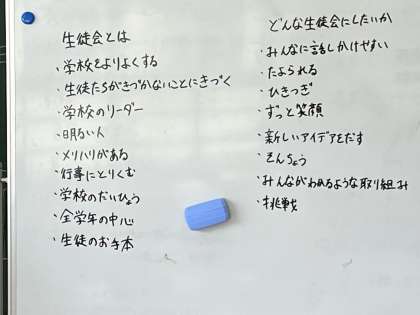 生徒会とは
・学校をよりよくする
・生徒たちがきづかないことにきづく
・学校のリーダー
・明るい人
・メリハリがある
・行事にとりくむ
・学校のだいひょう
・全学年の中心
・生徒のお手本
どんな生徒会にしたいか
・みんなに話しかけやすい
・たよられる
・ひきつぎ
・ずっと笑顔
・新しいアイデアをだす
・そんちょう
・みんながわかるような取り組み
・挑戦